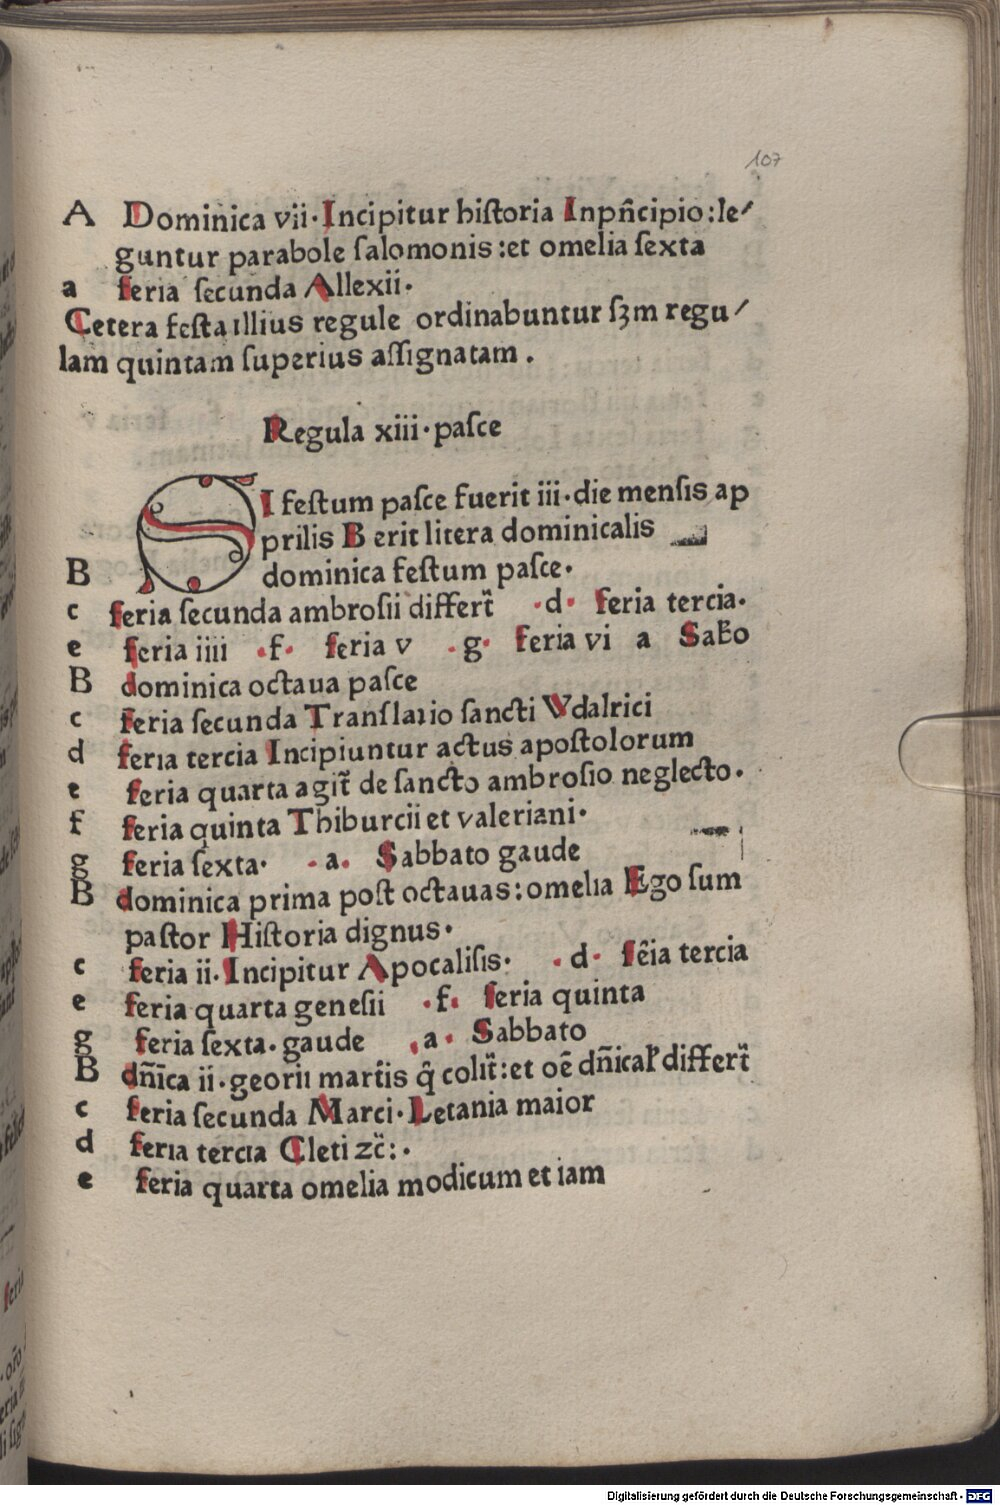 107
A Dominica vii· Incipitur hiſtoria Inpñcipio: le⸗
guntur parabole ſalomonis :et omelia ſexta
a feria ſecunda Allexii·
Cetera feſta illius regule ordinabuntur ſꝫm regu⸗
lam quintam ſuperius aſſignatam .
Regula xiii· paſce
SI feſtum paſce fuerit iii· die menſis ap
prilis B erit litera dominicalis
B dominica feſtum paſce·
c feria ſecunda ambroſii differt̃ ·d· feria tercia·
e feria iiii ·f· feria v ·g· feria vi a Sabb̃o
B dominica octaua paſce
c feria ſecunda Tranſlatio ſancti Vdalrici
d feria tercia Incipiuntur actus apoſtolorum
e feria quarta agit̃ de ſancto ambroſio neglecto·
f feria quinta Thiburcii et valeriani·
g feria ſexta· ·a· Sabbato gaude
B dominica prima poſt octauas: omelia Ego ſum
paſtor Hiſtoria dignus·
c feria ii· Incipitur Apocaliſis· ·d· fẽia tercia
e feria quarta geneſii ·f· feria quinta
g feria ſexta· gaude ·a· Sabbato
B dñica ii· georii martis q̃ colit̃: et oẽ dñical' differt̃
c feria ſecunda Marci· Letania maior
d feria tercia Cleti ꝛc̃:·
e feria quarta omelia modicum et iam
Digitalisierung gefördert durch die Deutsche Forschungsgemeinschaft - DFG